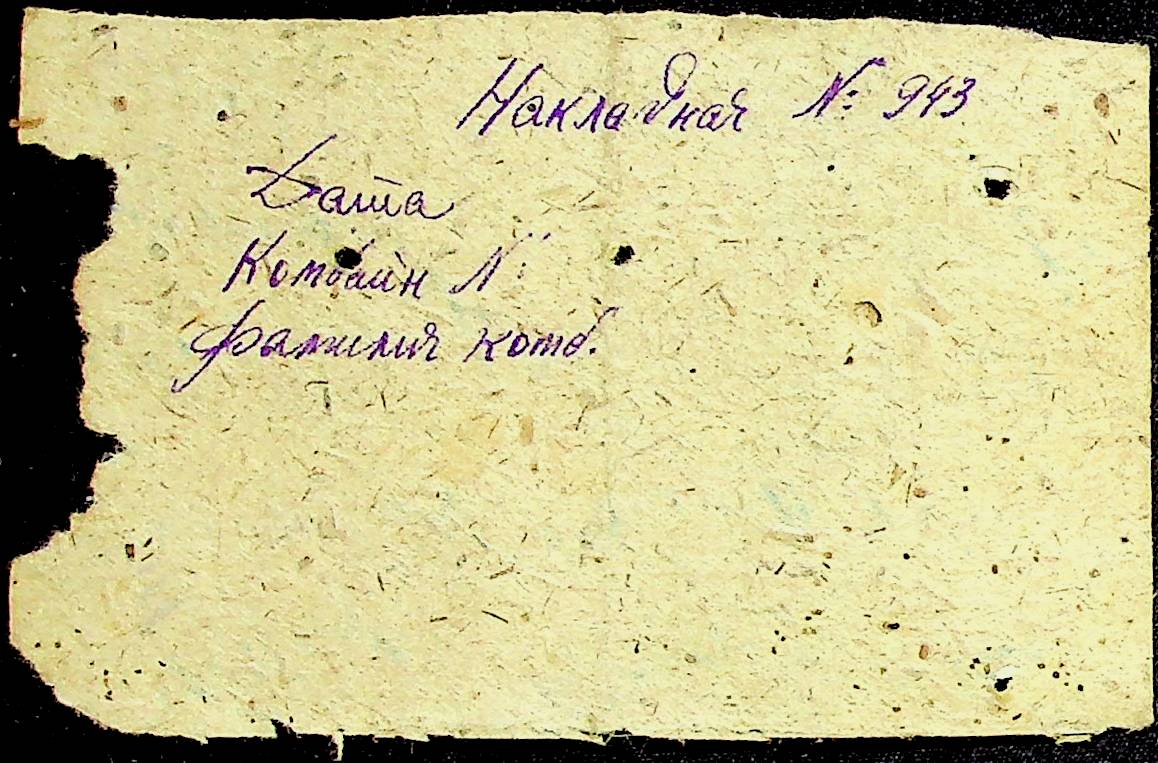 Накладная №: 943
Дата
Комбайн №:
Фамилия комб.